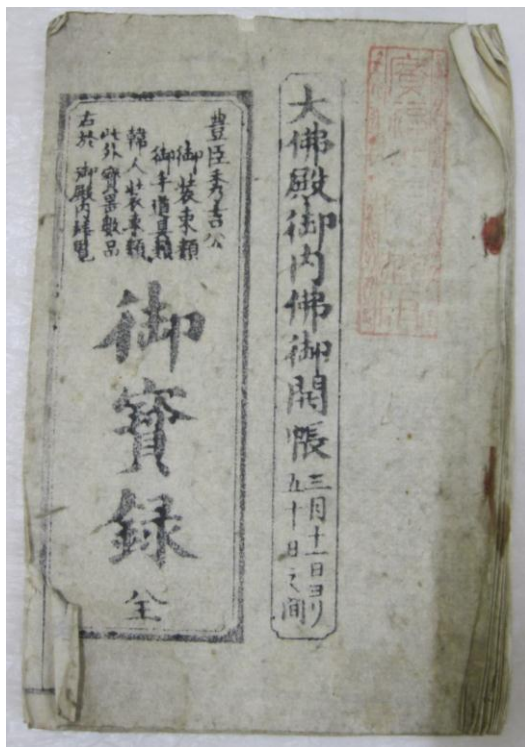 大佛殿御内佛御開帳
三月十一日ヨリ
五十日之間
豊臣秀吉公
御装束類
御手道具類
韓人装束類
此外寳器数品
右於御殿内縦覧
御寳録 全